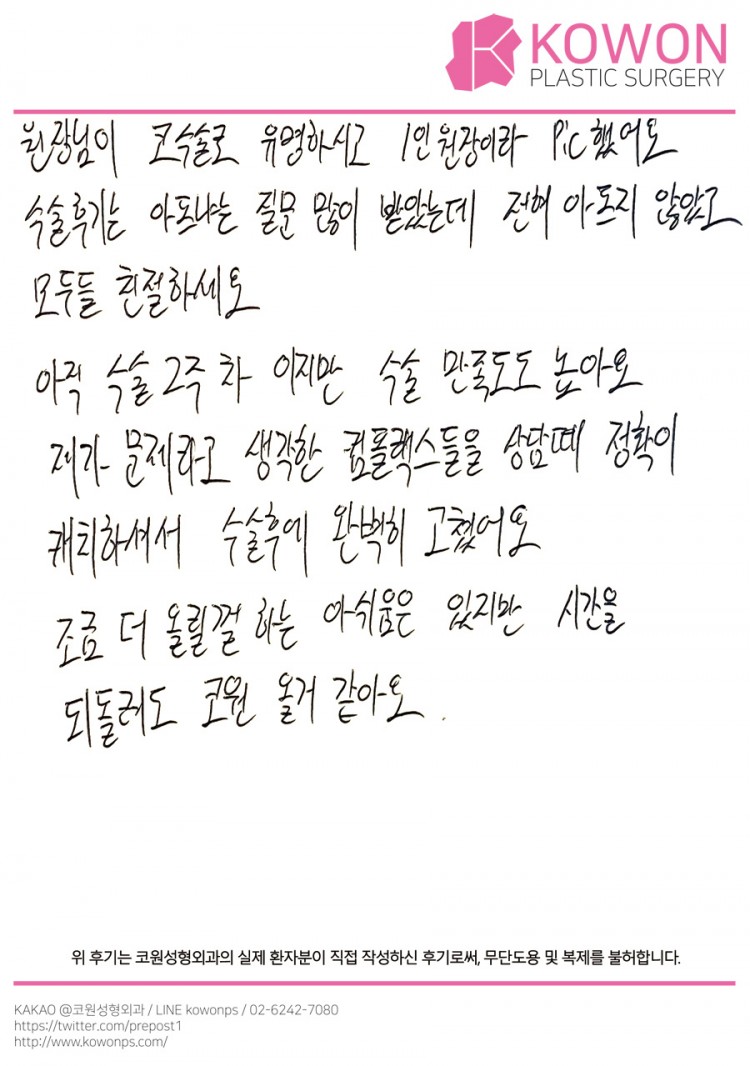 KOWON
PLASTIC SURGERY
원장님이 코수술로 유명하시고 1인 원장이라 Pic했어요
수술후기는 아프냐는 질문 많이 받았는데 전혀 아프지 않았고
모두들 친절하세요
아직 수술 2주 차 이지만 수술 만족도도 높아요
제가 문제라고 생각한 컴플렉스들을 상담때 정확이
캐치하셔서 수술후에 완벽히 고쳤어요
조금 더 올릴껄 하는 아쉬움은 있지만 시간을
되돌려도 코원 올거 같아요.
위 후기는 코원성형외과의 실제 환자분이 직접 작성하신 후기로써, 무단도용 및 복제를 불허합니다.
KAKAO @코원성형외과 / LINE kowonps / 02-6242-7080
https://twitter.com/prepost1
http://www.kowonps.com/